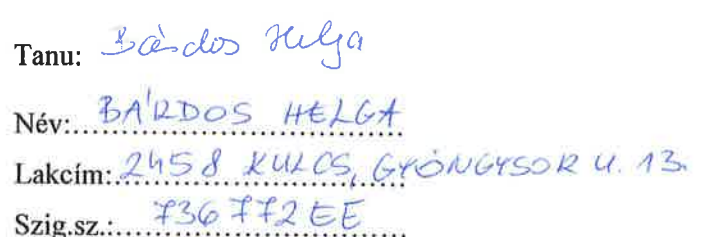 Tanu: Bárdos Helga
Név: BÁRDOS HELGA
Lakcím: 2458 KULCS, GYÖNGYSOR U. 13.
Szig.sz.: 736772EE